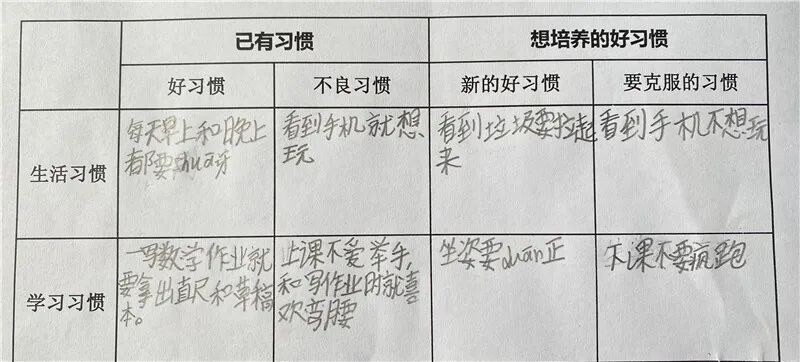 已有习惯
想培养的好习惯
好习惯
不良习惯
新的好习惯
要克服的习惯
生活习惯
每天早上和晚上
都要shuā牙
看到手机就想
玩
看到垃圾要捡起
来
看到手机不想玩
学习习惯
一写数学作业就
要拿出直尺和草稿
本。
上课不爱举手,
和写作业时就喜
欢弯腰
坐姿要duān正
下课不要疯跑